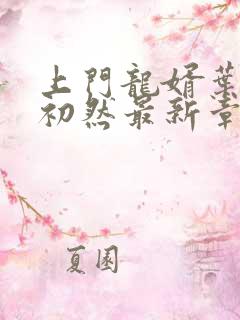 上門龍婿葉
初然最新章
夏園